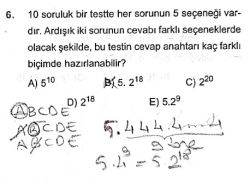 6. 10 soruluk bir testte her sorunun 5 seçeneği var-
dır. Ardışık iki sorunun cevabı farklı seçeneklerde
olacak şekilde, bu testin cevap anahtarı kaç farklı
biçimde hazırlanabilir?
A) 5¹⁰ B) 5. 2¹⁸ C) 2²⁰
D) 2¹⁸ E) 5.2⁹
ABCDE
ABCDE
ABCDE
5.444.4...4
9 tane
5.4⁹ = 5 2¹⁸